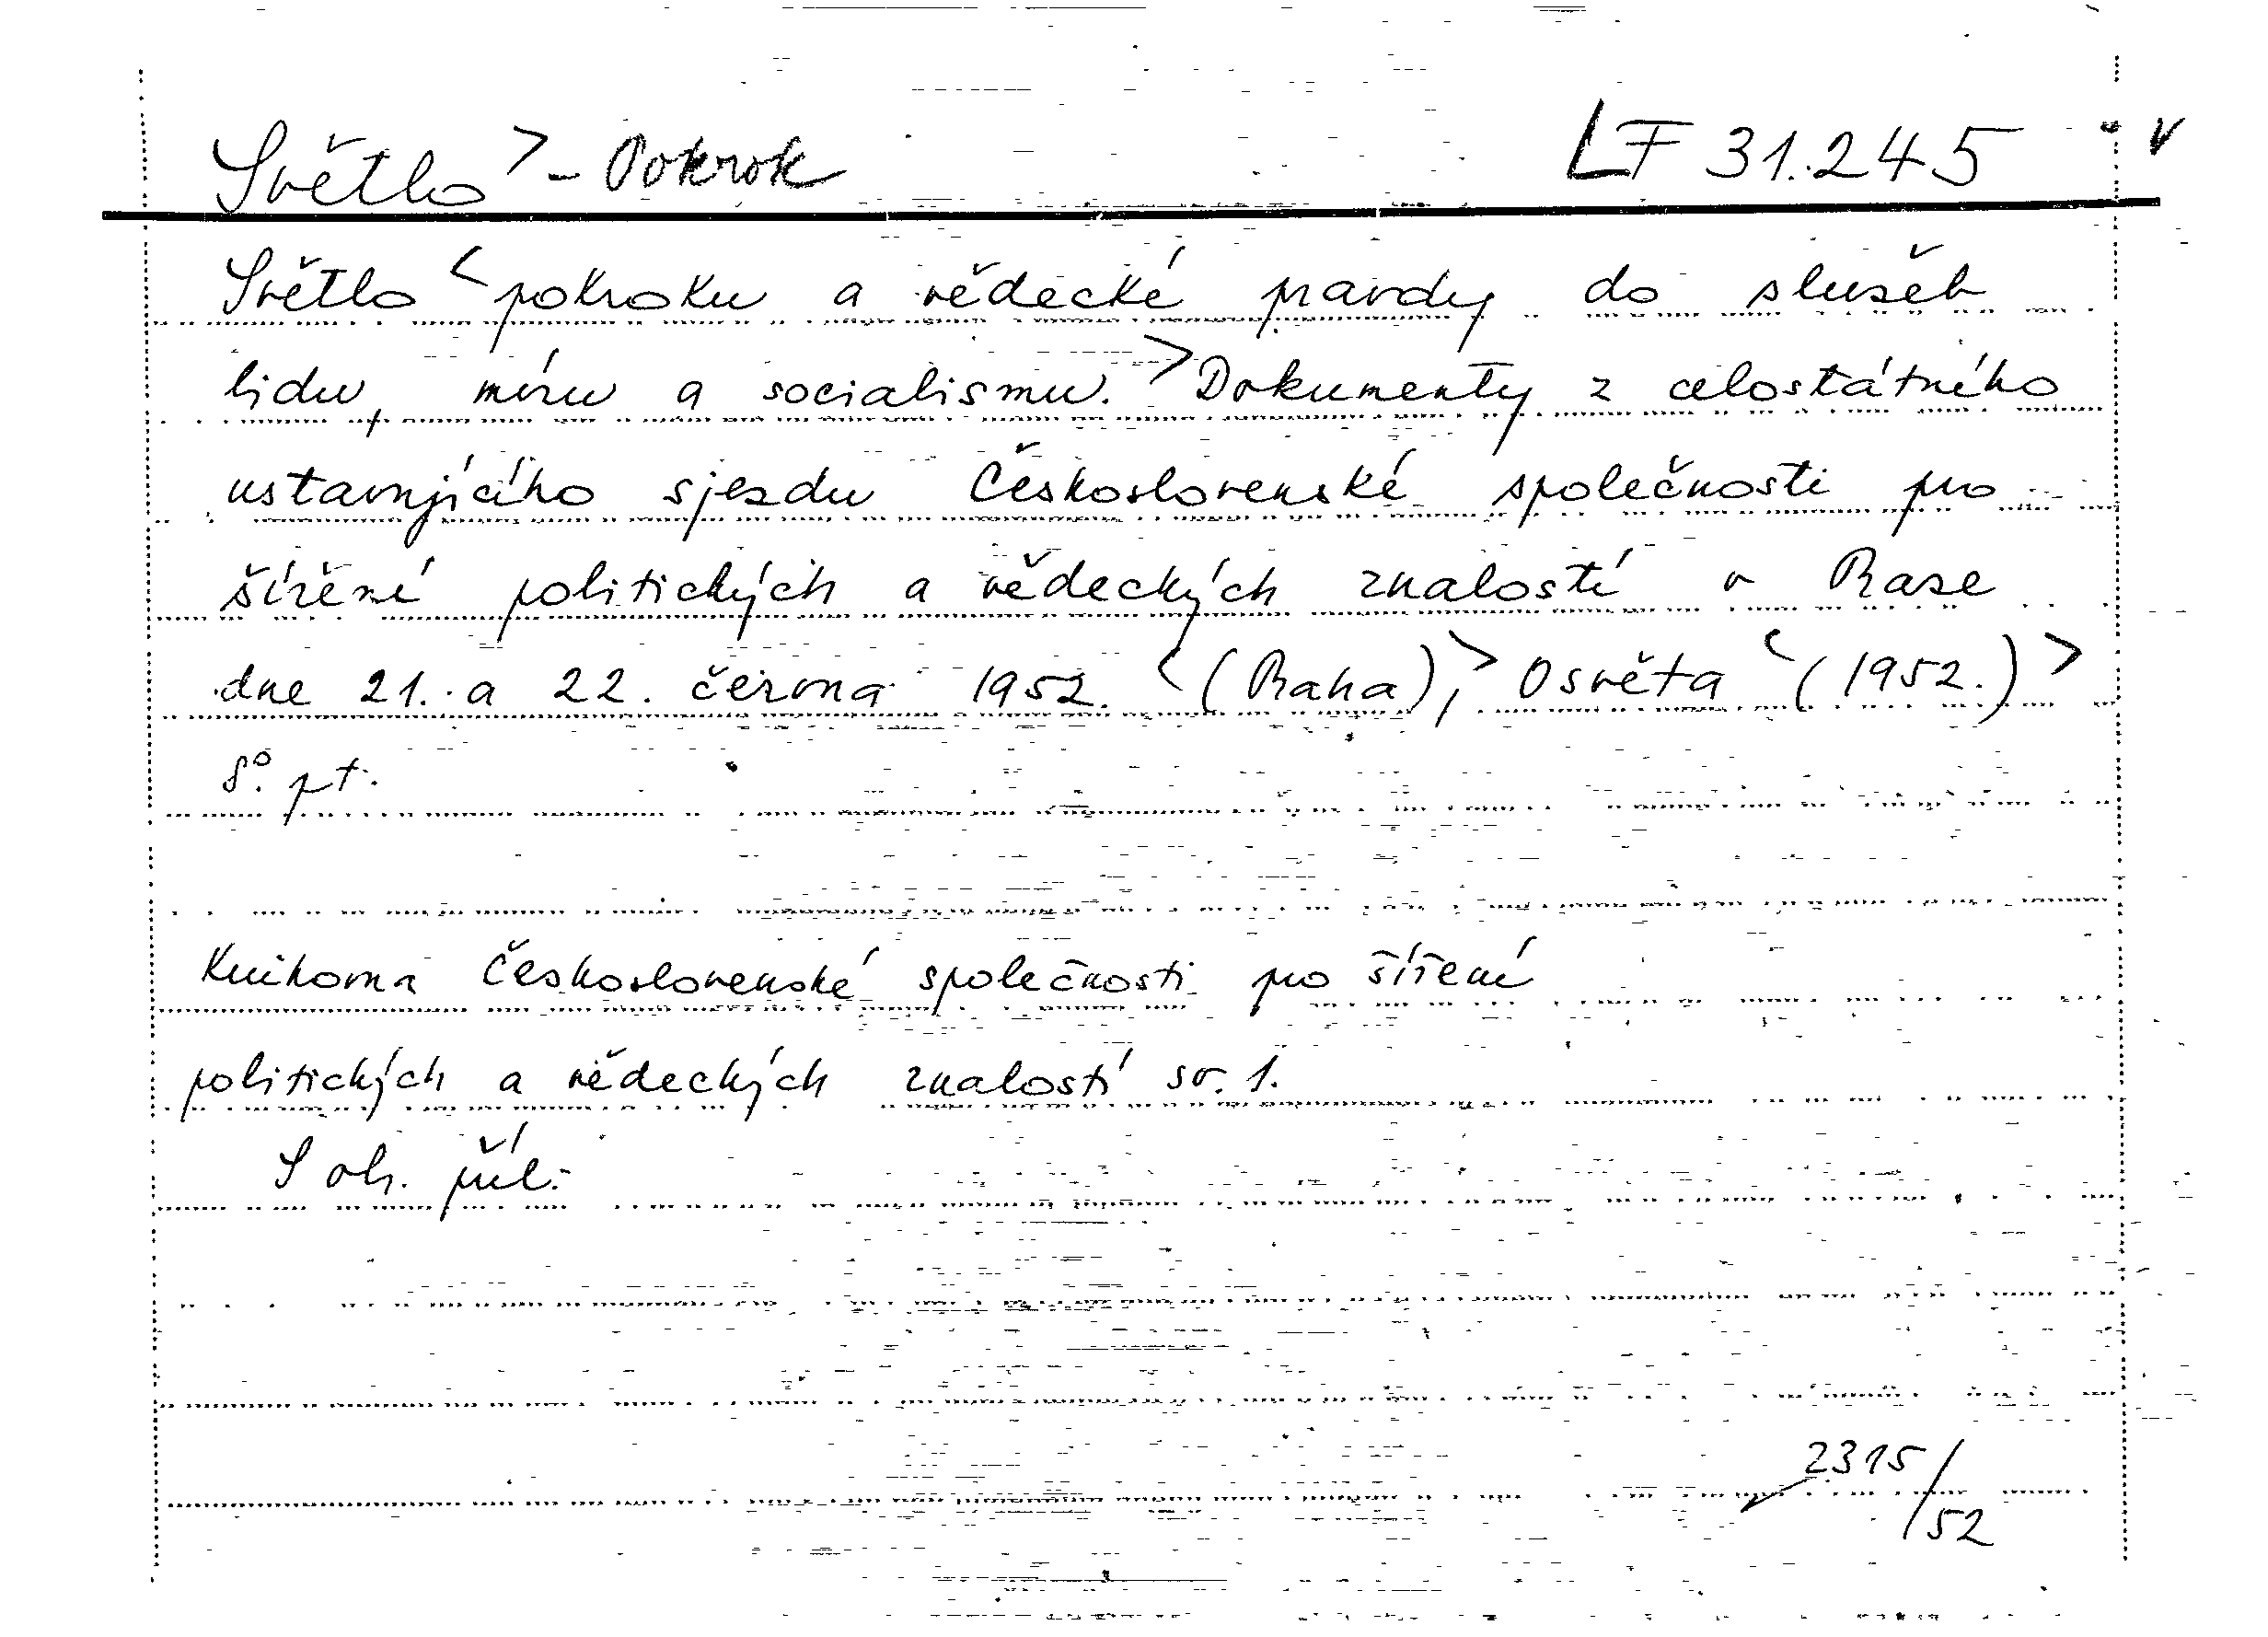 Světlo > - Pokrok LF 31.245 v
Světlo < pokroku a vědecké pravdy do služeb
lidu, míru a socialismu. > Dokumenty z celostátního
ustavujícího sjezdu Československé společnosti pro
šíření politických a vědeckých znalostí v Praze
dne 21. a 22. června 1952. < (Praha), > Osvěta < (1952.) >
8°. pt.
Knihovna Československé společnosti pro šíření
politických a vědeckých znalostí sv. 1.
S ob. příl.
2315/52